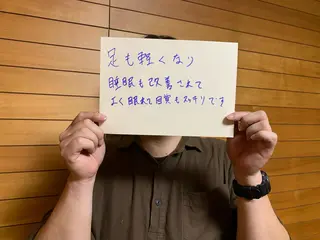 足も軽くなり
睡眠も改善されて
よく眠れて目覚もスッキリです